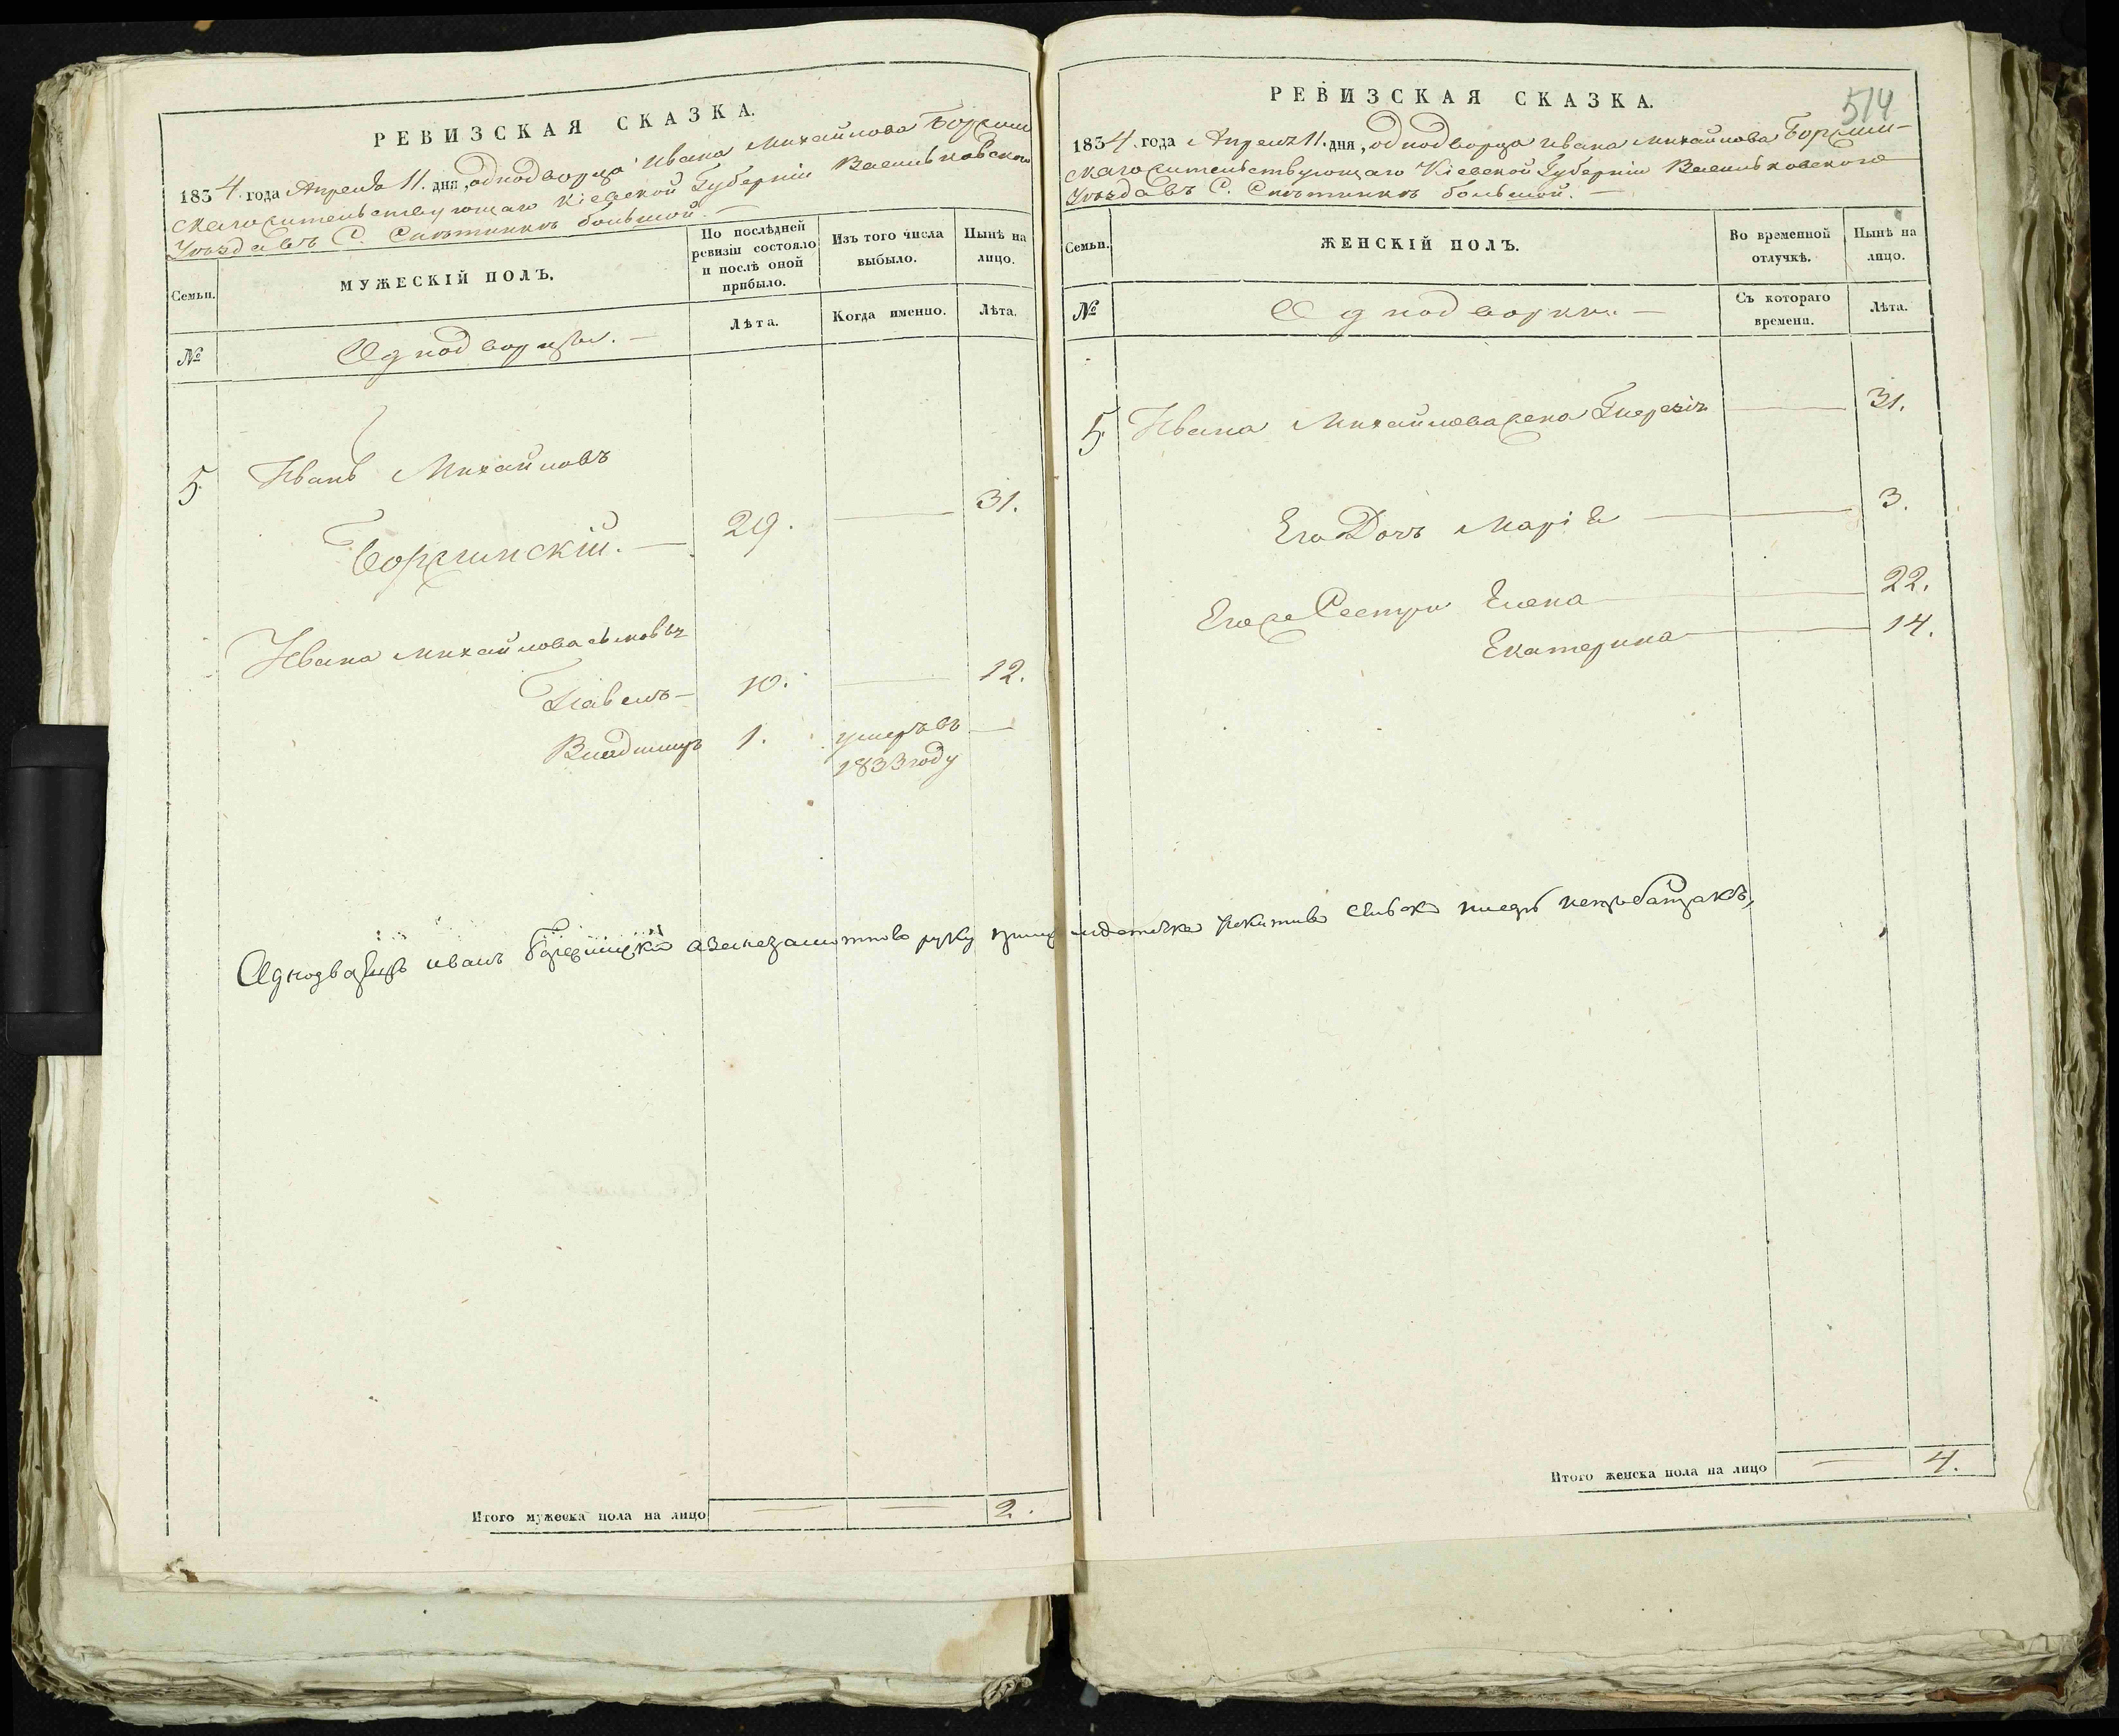 РЕВИЗСКАЯ СКАЗКА.
1834. года Апреля 11. дня, однодворца Ивана Михайлова Боржим
скаго жительствующаго Кіевской Губерніи Васильковского
Уѣзда въ С. Снѣтинкѣ большой. —
Семьи.
МУЖЕСКІЙ ПОЛЪ.
По послѣдней ревизіи состояло и послѣ оной прибыло.
Изъ того числа выбыло.
Нынѣ на лицо.
№
Однодворцы. —
Лѣта.
Когда именно.
Лѣта.
5. Иванъ Михайловъ
Боржимскій. — 29. — 31.
Ивана Михайлова сыновья
Павелъ — 10. — 12.
Владимиръ 1. умеръ въ —
1833 году
Однодварецъ иванъ руку
Итого мужеска пола на лицо — — 2.
РЕВИЗСКАЯ СКАЗКА.
514
1834. года Апреля 11. дня, однодворца Ивана Михайлова Боржим-
скаго жительствующаго Кіевской Губерніи Васильковского
Уѣзда въ С. Снѣтинкѣ большой. —
Семьи.
ЖЕНСКІЙ ПОЛЪ.
Во временной отлучкѣ.
Нынѣ на лицо.
№
Однодворки. —
Съ котораго времени.
Лѣта.
5. Ивана Михайлова жена — 31.
Его Дочь Марія — 3.
Его же Сестри Елена — 22.
Екатерина — 14.
Итого женска пола на лицо — 4.